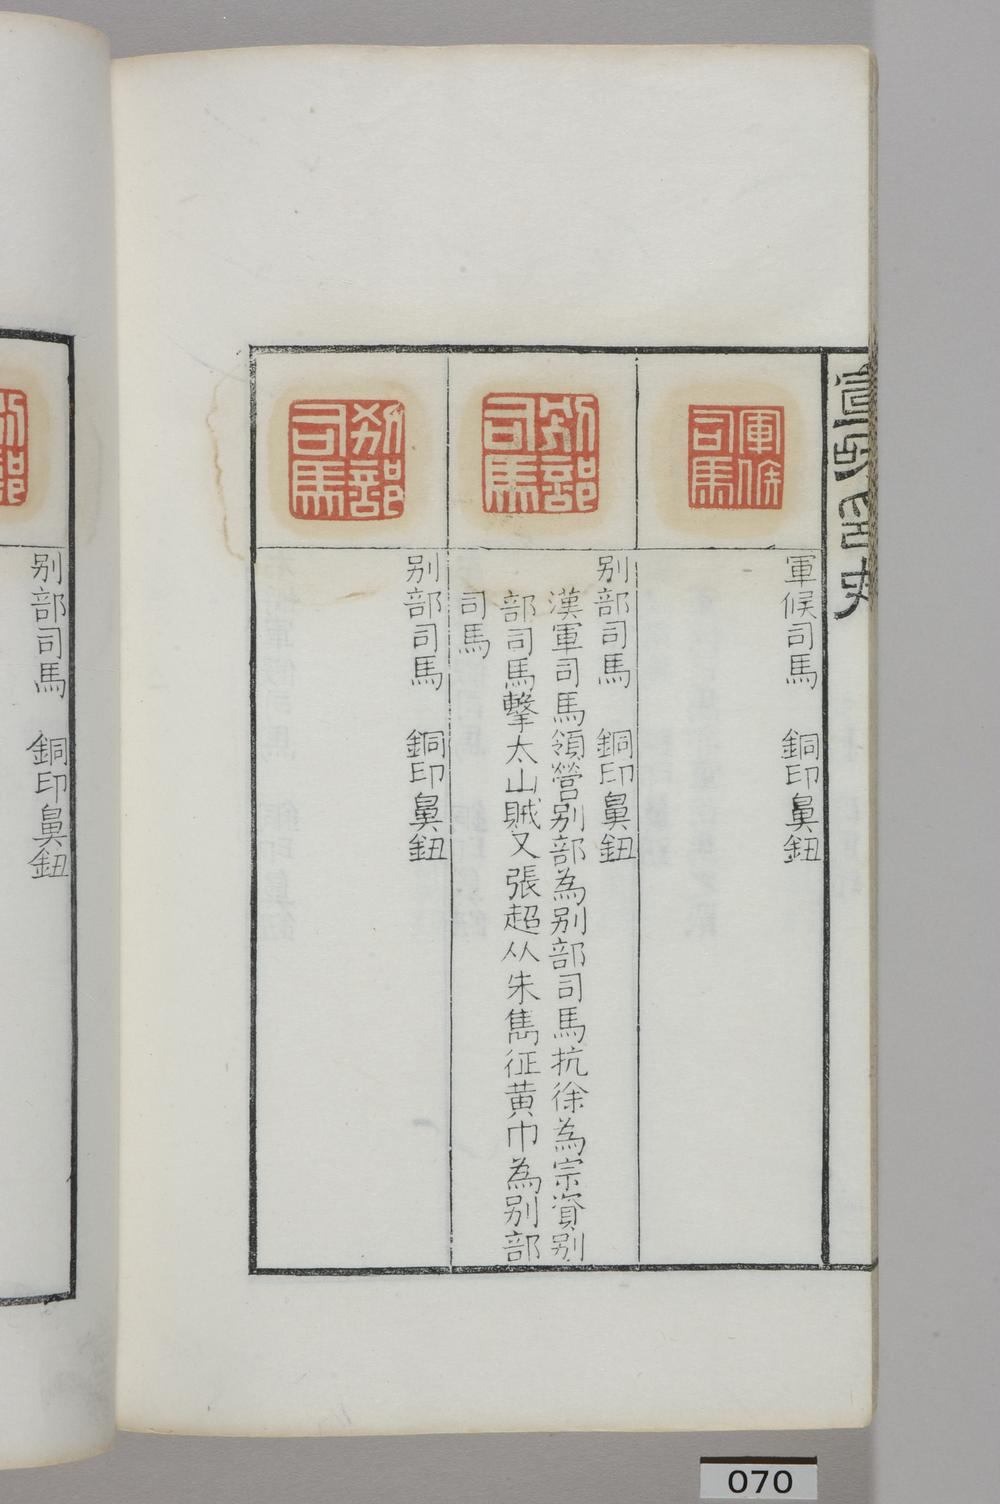 軍候司馬
軍候司馬 銅印鼻鈕
別部司馬
別部司馬 銅印鼻鈕
漢軍司馬領營別部為別部司馬抗徐為宗資別
部司馬擊太山賊又張超从朱雋征黃巾為別部
司馬
別部司馬
別部司馬 銅印鼻鈕
別部
別部司馬 銅印鼻鈕
070